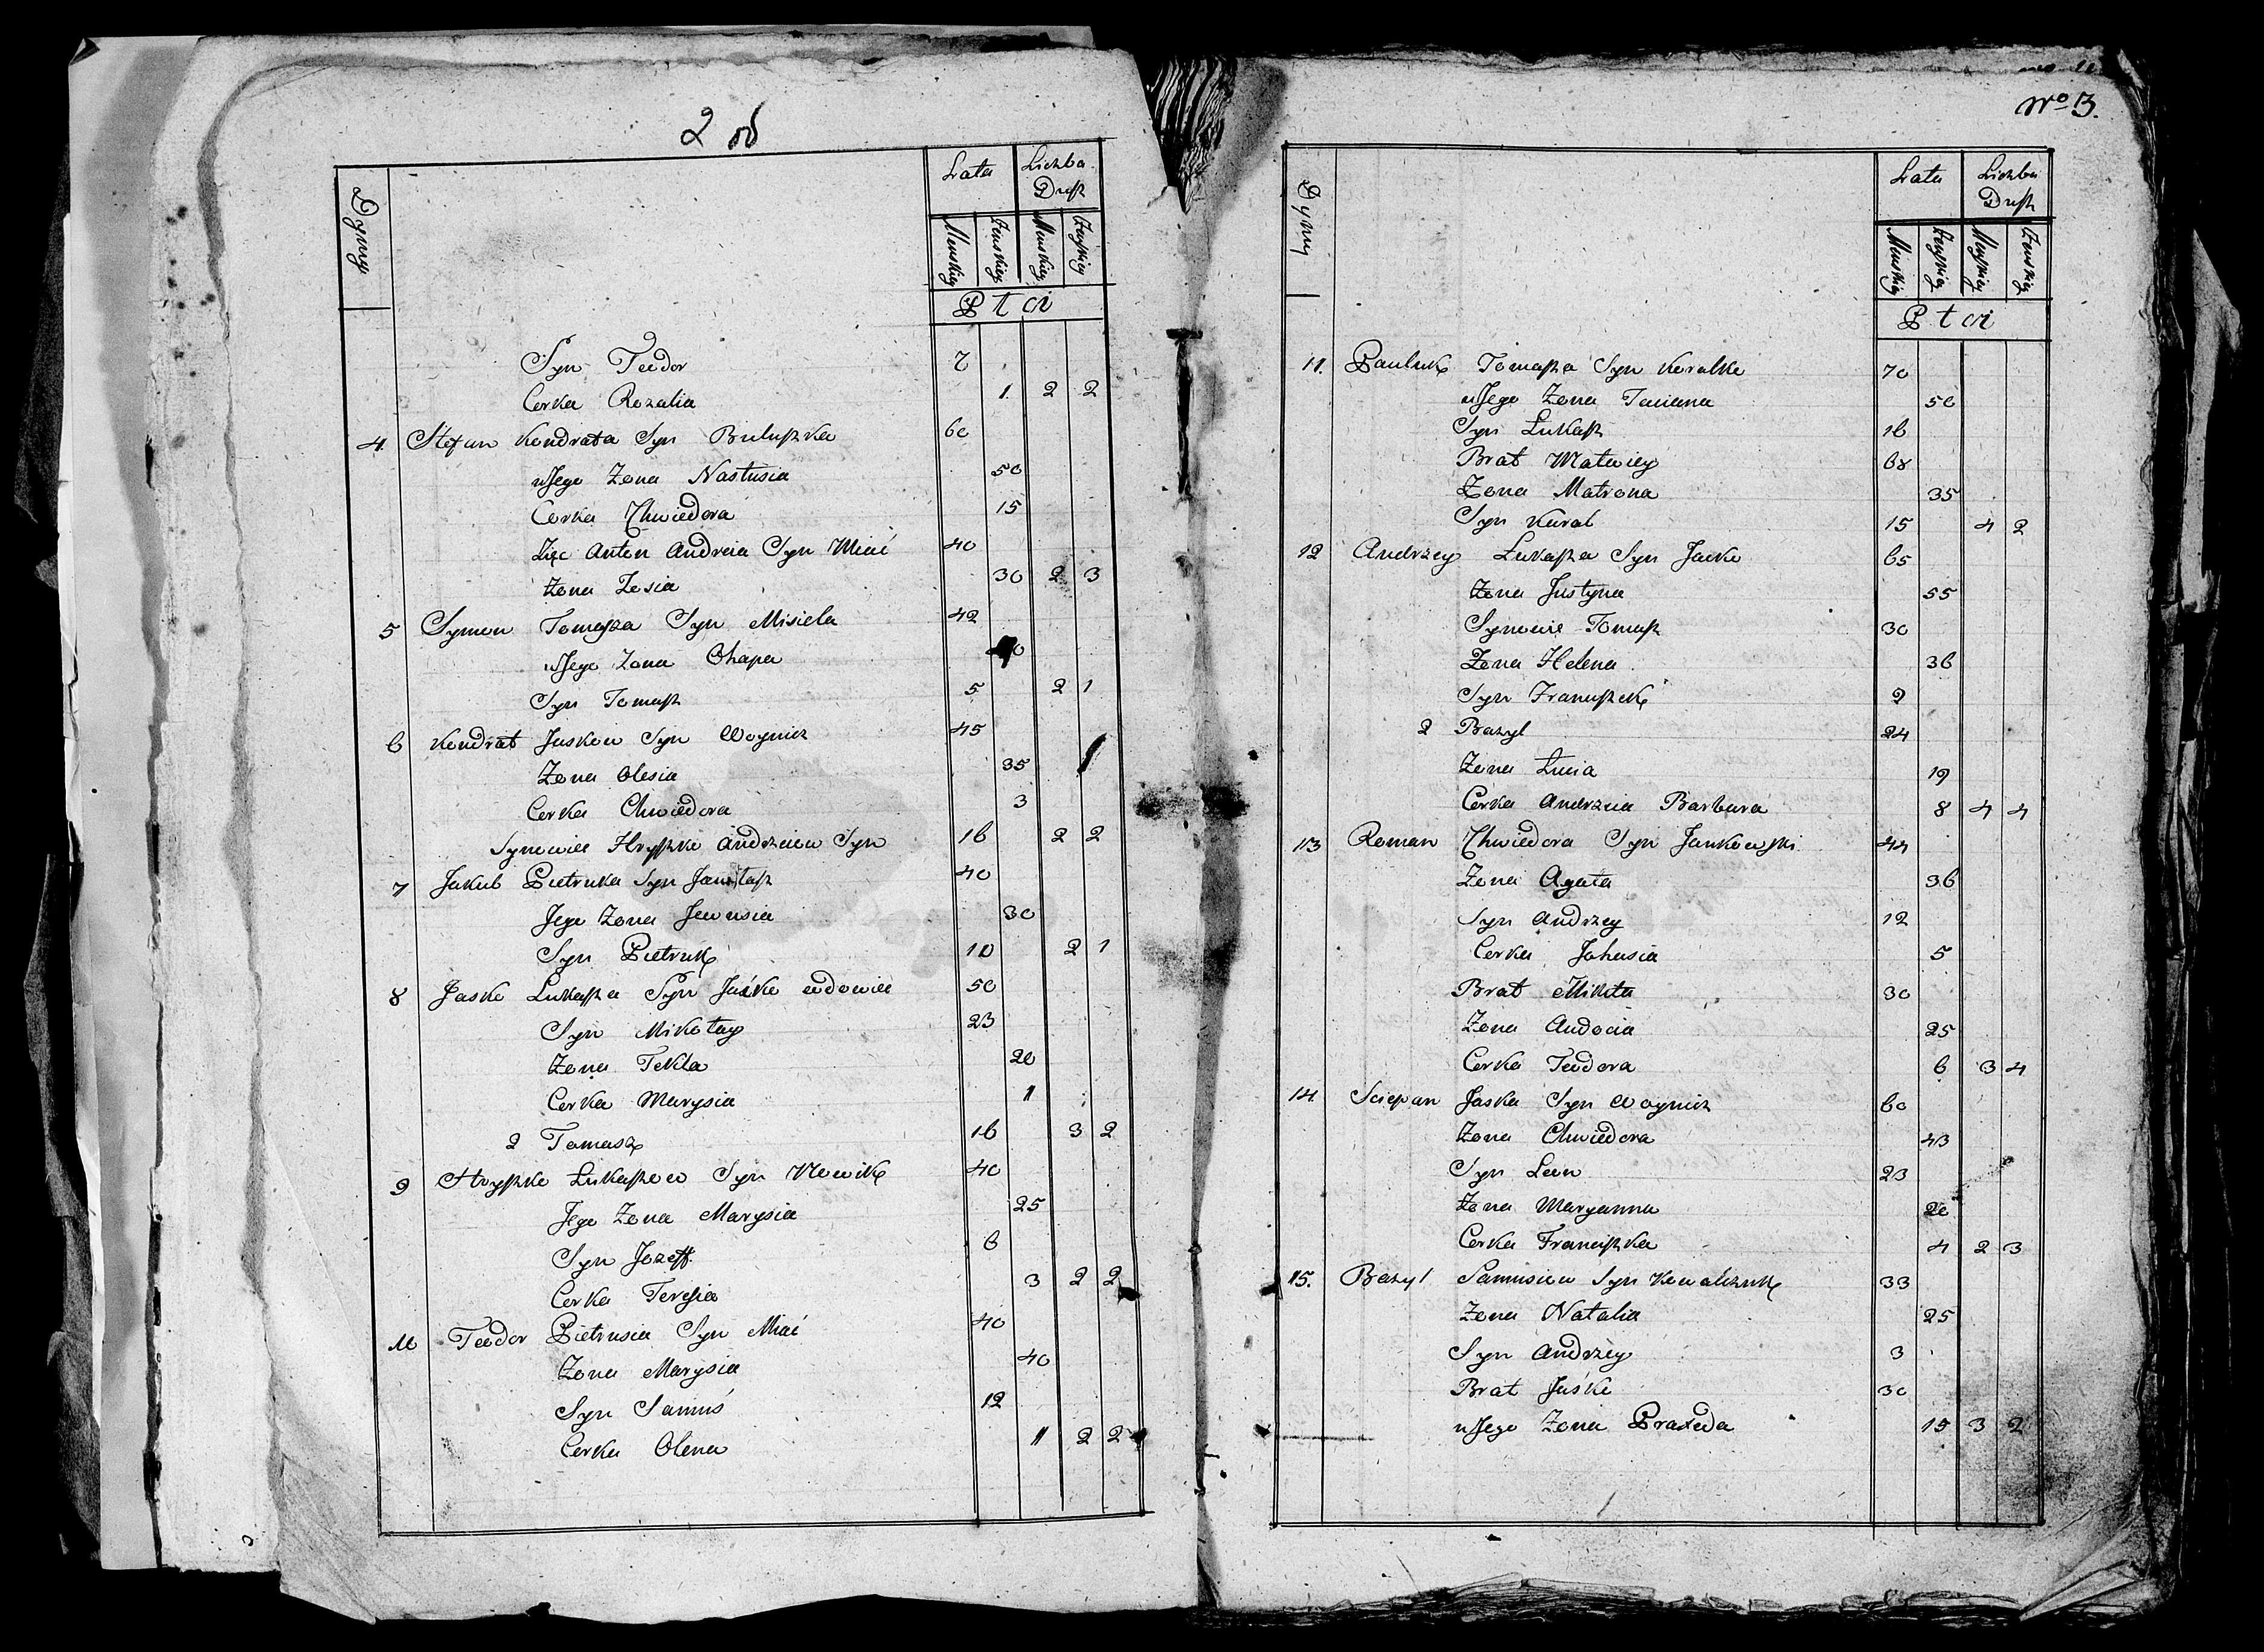 2
Dymy
Lata
Liczba Dusz
Menskiey
Żenskiey
Menskiey
Żenskiey
Płci
Syn Teodor 7
Corka Rozalia 1 2 2
4. Stefan Kondrata Syn Buluszka 60
Jego Żona Nastusia 50
Corka Chwiedora 15
Zięc Anton Andreia Syn Miać 40
Żona Zosia 30 2 3
5 Symon Tomasza Syn Misiela 42
Jego Żona Ohapa
Syn Tomasz 5 2 1
6 Kondrat Jaskow Syn Woynicz 45
Żona Olesia 35
Corka Chwiedora 3
Synowiec Hryszko Andrzeiow Syn 16 2 2
7 Jakub Pietruka Syn 40
Jego Żona Jewusia 30
Syn Pietruk 10 2 1
8 Jasko Lukasza Syn Jaśko wdowiec 50
Syn Mikołay 23
Żona Tekla 20
Corka Marysia 1
2 Tomasz 16 3 2
9 Hryszko Lukaszow Syn Nowik 40
Jego Żona Marysia 25
Syn Jozeff 6
Corka Teresia 3 2 2
10 Teodor Pietrusia Syn Miać 40
Żona Marysia 40
Syn Samuś 12
Corka Olena 1 2 2
No 3.
Dymy
Lata
Liczba Dusz
Menskiey
Żenskiey
Menskiey
Żenskiey
Płci
11. Pauluk Tomasza Syn Koralko 70
Jego Żona Taciana 50
Syn Lukasz 16
Brat Matwiey 68
Żona Matrona 35
Syn Karol 15 4 2
12 Andrzey Lukasza Syn Jacko 65
Żona Justyna 55
Synowie Tomasz 30
Żona Helena 36
Syn Franuszek 2
2 Bazyl 24
Żona Lucia 19
Corka Andrzeia Barbara 8 4 4
13 Roman Chwiedora Syn Jankowski 44
Żona Agata 36
Syn Andrzey 12
Corka Johasia 5
Brat Mikita 30
Żona Audocia 25
Corka Teodora 6 3 4
14. Sciepan Jaska Syn Woynicz 60
Żona Chwiedora 43
Syn Leon 23
Żona Maryanna 20
Corka Franciszka 4 2 3
15. Bazyl Samusiow Syn Kowalczuk 33
Żona Natalia 25
Syn Andrzey 3
Brat Jaśko 30
Jego Żona Praxeda 15 3 2